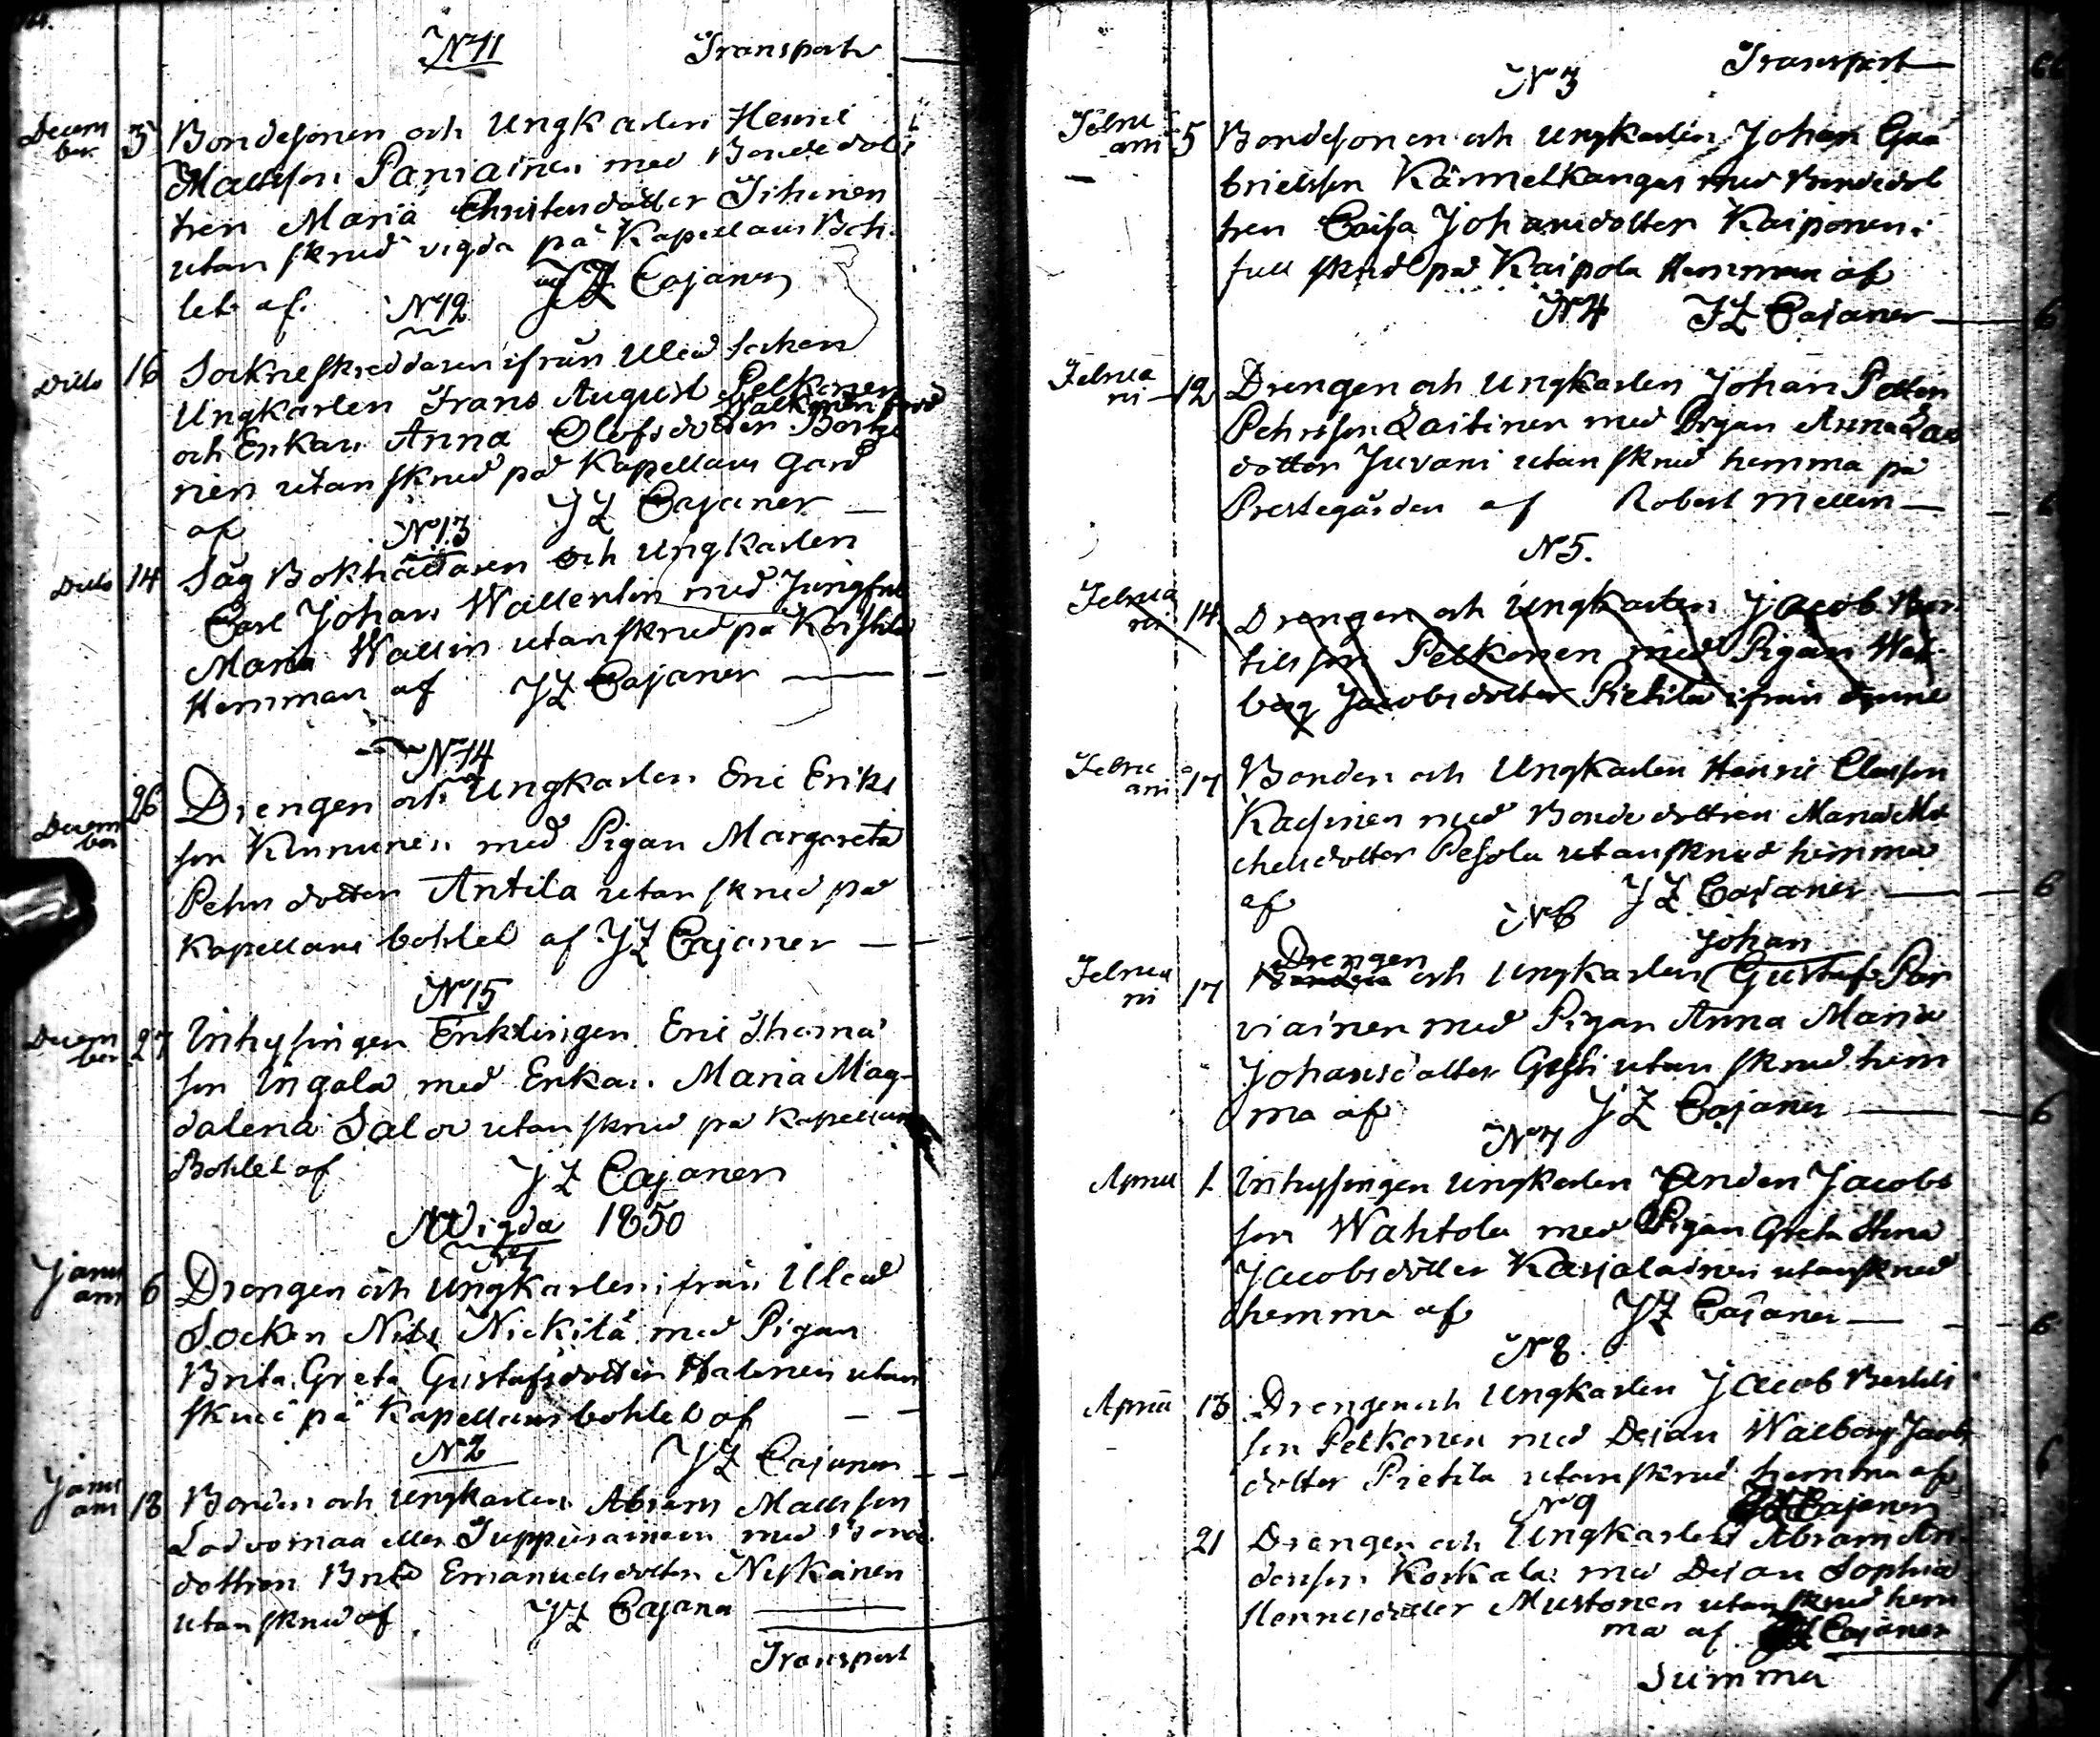 N 11 Transport
Decem
ber 3 Bondesonen och Ungkarlen Henric
Mattsson Parviainen med Bondedot
tren Maria Christersdotter Tihinen
utan skrud vigda på Kapellans Boh
let af. J Z Cajaner
N 12
Ditto 16 Sockneskreddaren ifrån Uleå Socken
Ungkarlen Frans August Pelkonen
och Enkan Anna Olofsdotter
nen utan skrud på Kapellans Gård
af J Z Cajaner
N 13
Ditto 14 Såg Bokhållaren och Ungkarlen
Carl Johan Wallentin med Jungfru
Maria Wallin utan skrud på
Hemman af J Z Cajaner
N 14
Decem
ber 26 Drengen och Ungkarlen Eric Eriks
son Kinnunen med Pigan Margareta
Pehrsdotter Antila utan skrud på
Kapellans bohlet af J Z Cajaner
N 15
Decem
ber 27 Inhysingen Enklingen Eric Thoma
son Ingala med Enkan Maria Mag-
dalena Salo utan skrud på Kapellans
Bohlet af J Z Cajaner
Vigda 1850
N 1
Janu
ari 6 Drengen och Ungkarlen ifrån Uleå
Socken Nils Nickilä med Pigan
Brita Greta Gustafsdotter Halonen utan
skrud på Kapellans bohlet af
N 2 J Z Cajaner
Janu
ari 18 Bonden och Ungkarlen Abram Mattsson
eller med Bonde
dottren Brita Emanuelsdotter Niskanen
utan skrud af J Z Cajaner
Transport
Transport
N 3
Febru
ari 5 Bondesonen och Ungkarlen Johan Gaa
brielsson Kärmelkangas med Bondedot
tren Caisa Johansdotter Kaiponen i
full skrud på Kaipola Hemman af
N 4 J Z Cajaner 6
Februa
ri 12 Drengen och Ungkarlen Johan Petter
Pehrsson Laitinen med Pigan Anna
dotter Juvani utan skrud hemma på
Prestegården af Robert Mellin 6
N 5.
Februa
ri 14 Drengen och Ungkarlen Jacob Ber
tilsson Pelkonen med Pigan Wal
borg Jacobsdotter Pietilä ifrån
Febru
ari 17 Bonden och Ungkarlen Henric Elasson
Kasinen med Bondedottren Maria Mi
chelsdotter Pesola utan skrud hemma
af J Z Cajaner 6
N 6
Johan
Drengen
Februa
ri 17 Bonden och Ungkarlen Gustaf Par
viainen med Pigan Anna Maria
Johansdotter utan skrud hem
ma af J Z Cajaner 6
N 7
April 1 Inhysingen Ungkarlen Anders Jacobs
son Wahtola med Pigan Greta Stina
Jacobsdotter Karjalainen utan skrud
hemma af J Z Cajaner 6
N 8
April 18 Drengen och Ungkarlen Jacob Bertils
son Pelkonen med Dejan Walborg Jacobs
dotter Pietilä utan skrud hemma af 6
N 9 J Z Cajaner
21 Drengen och Ungkarlen Abram An
dersson Korkala med Dejan Sophia
Henricsdotter Mustonen utan skrud hem
ma af J Z Cajaner
Summa